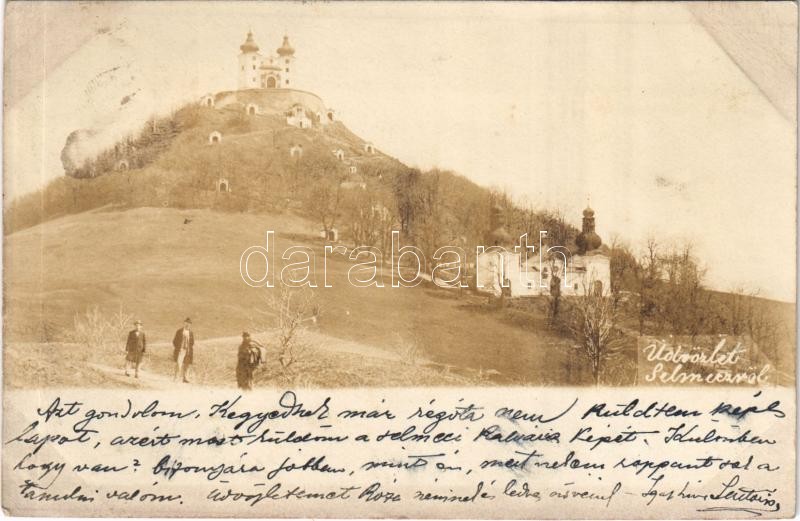 darabanth.com
Üdvözlet
Selmeczről
Azt gondolom, Kegyednek már régóta nem küldtem képes
lapot, azért most küldöm a selmeci Kalvaria képét. Külömben
hogy van? bizonyára jobban, mint én, mert nekem roppant sok a
tanulni valóm. Üdvözletemet Róza néninek és kedves